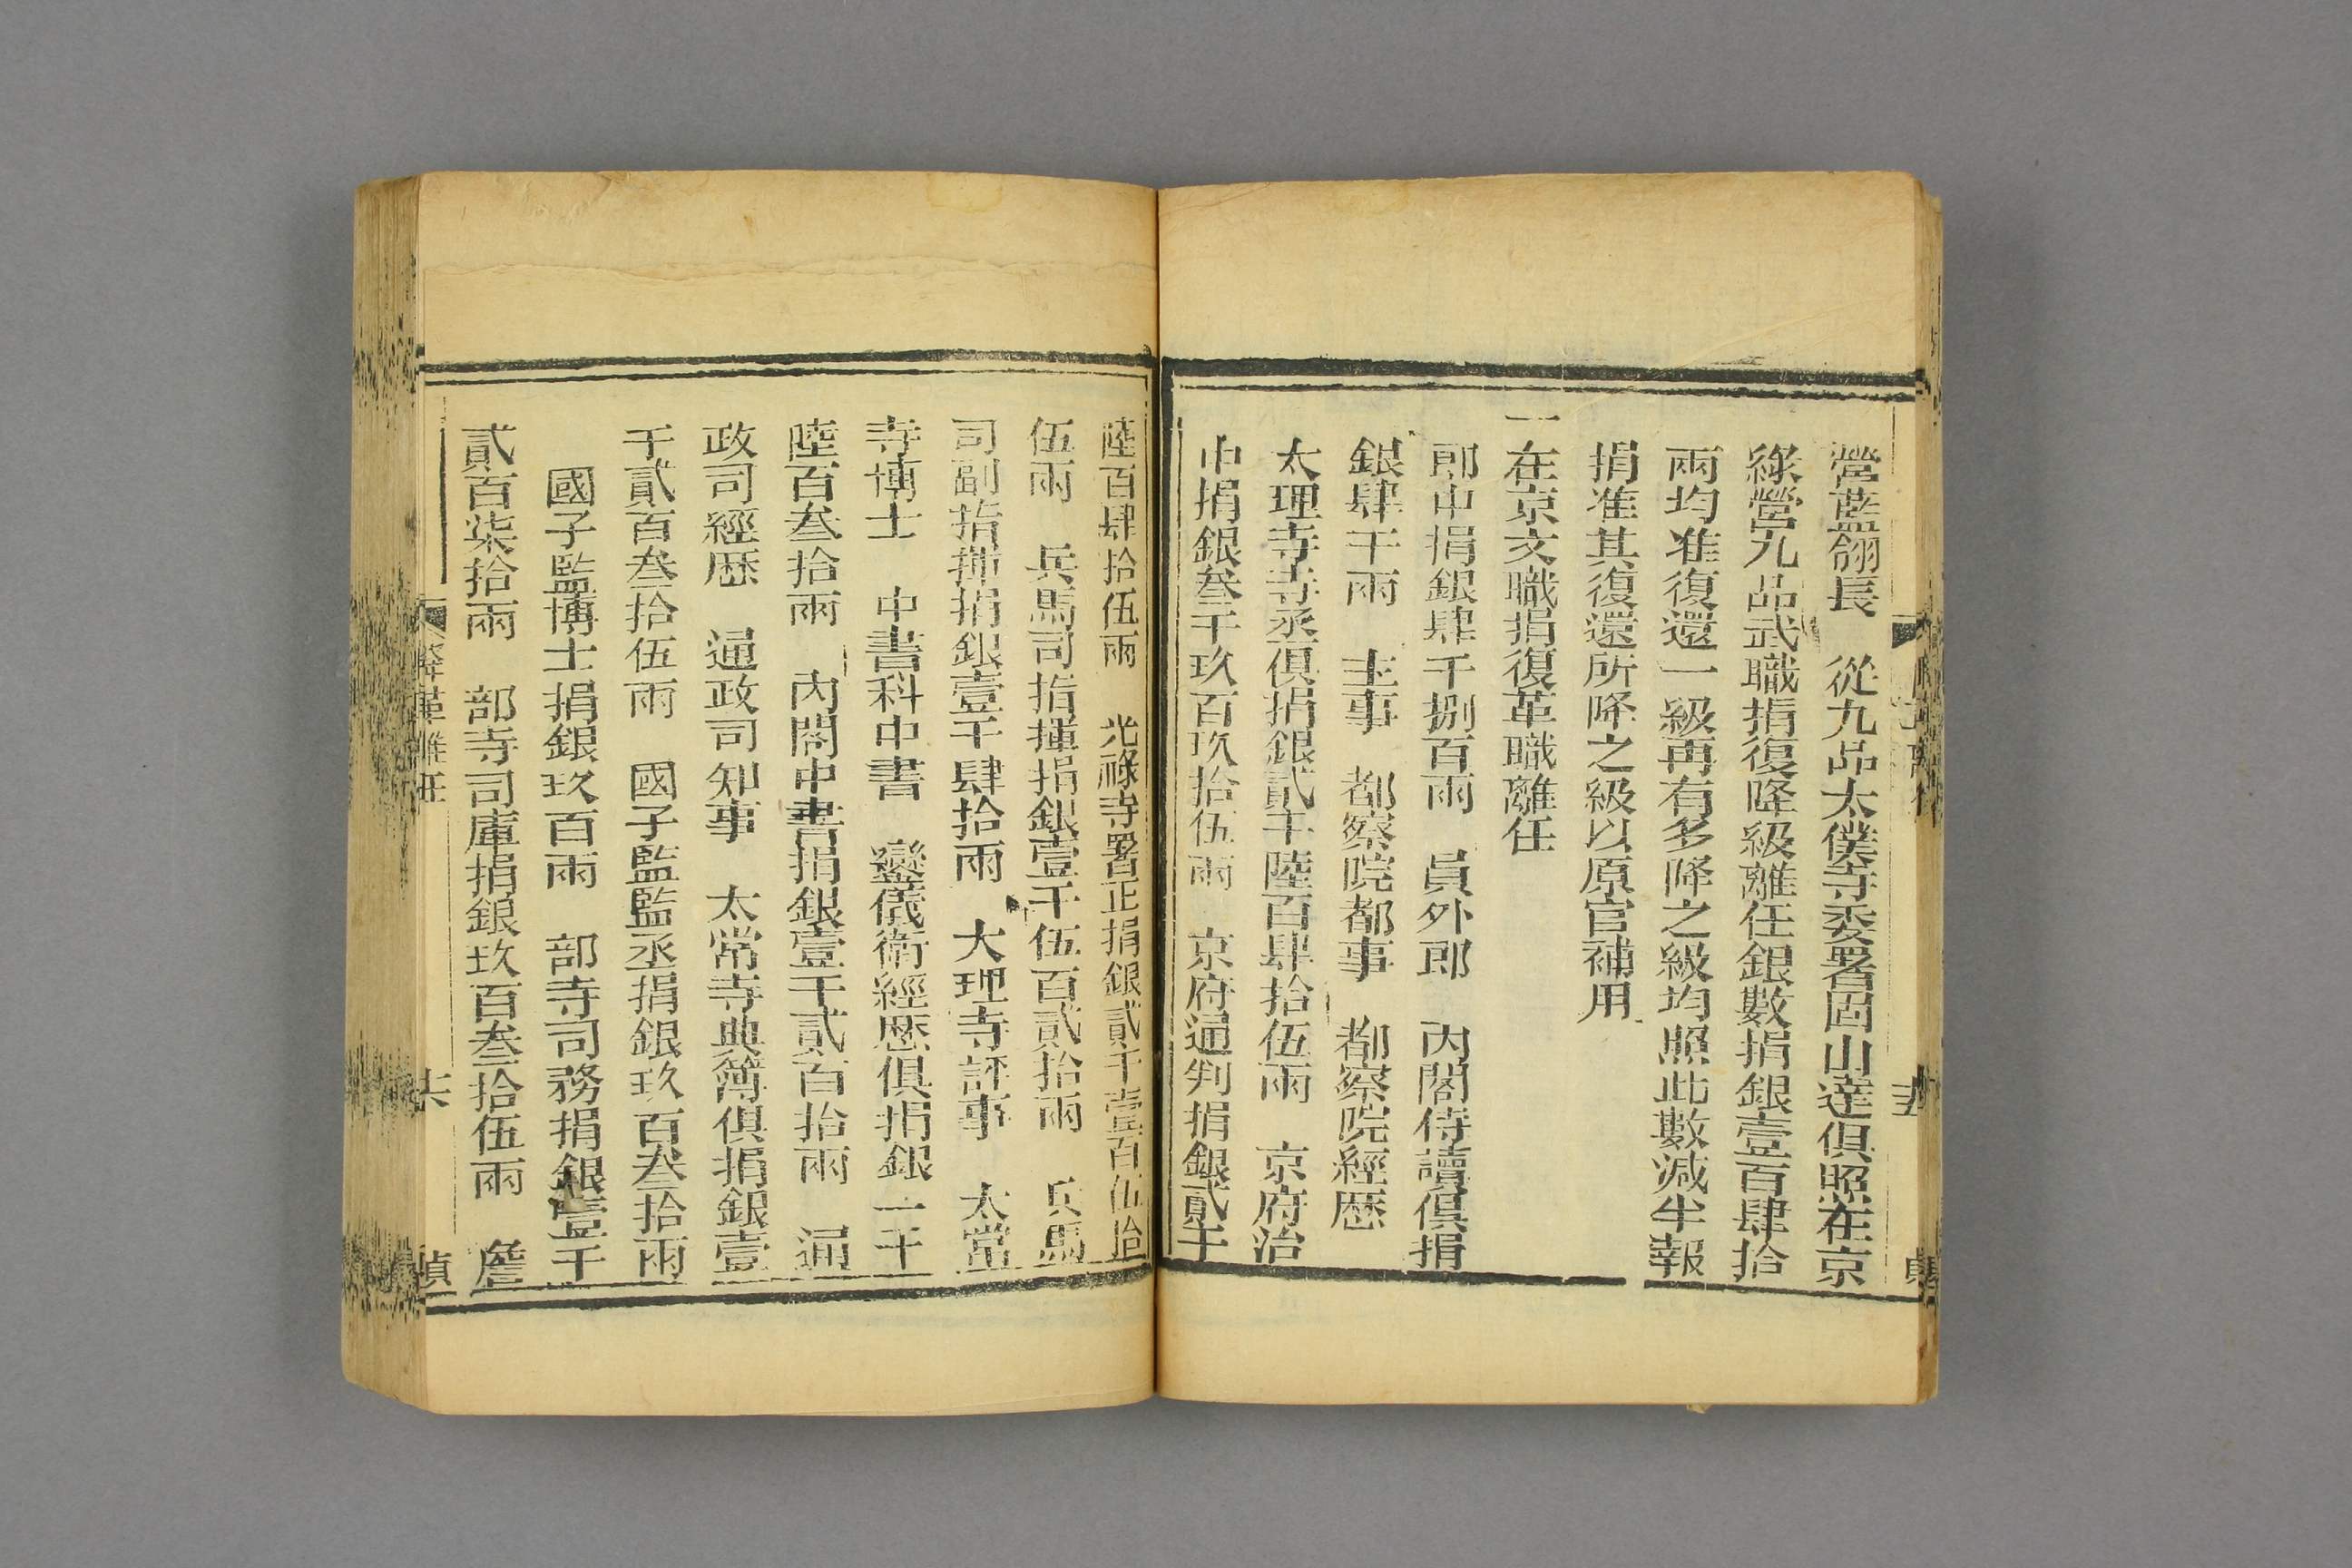 營藍翎長　從九品太僕寺委署固山達俱照在京
綠營九品武職捐復降級離任銀數捐銀壹百肆拾
兩均准復還一級再有多降之級均照此數減半報
捐准其復還所降之級以原官補用
一在京文職捐復革職離任
郎中捐銀肆千捌百兩　員外郎　內閣侍讀俱捐
銀肆千兩　主事　都察院都事　都察院經歷
大理寺寺丞俱捐銀貳千陸百肆拾伍兩　京府治
中捐銀叁千玖百玖拾伍兩　京府通判捐銀貳千
陸百肆拾伍兩　光祿寺署正捐銀貳千壹百伍拾
伍兩　兵馬司指揮捐銀壹千伍百貳拾兩　兵馬
司副指揮捐銀壹千肆拾兩　大理寺評事　太常
寺博士　中書科中書　鑾儀衛經歷俱捐銀一千
陸百叁拾兩　內閣中書捐銀壹千貳百拾兩　通
政司經歷　通政司知事　太常寺典簿俱捐銀壹
千貳百叁拾伍兩　國子監監丞捐銀玖百叁拾兩
國子監博士捐銀玖百兩　部寺司務捐銀壹千
貳百柒拾兩　部寺司庫捐銀玖百叁拾伍兩　詹
降革離任
十六
貞